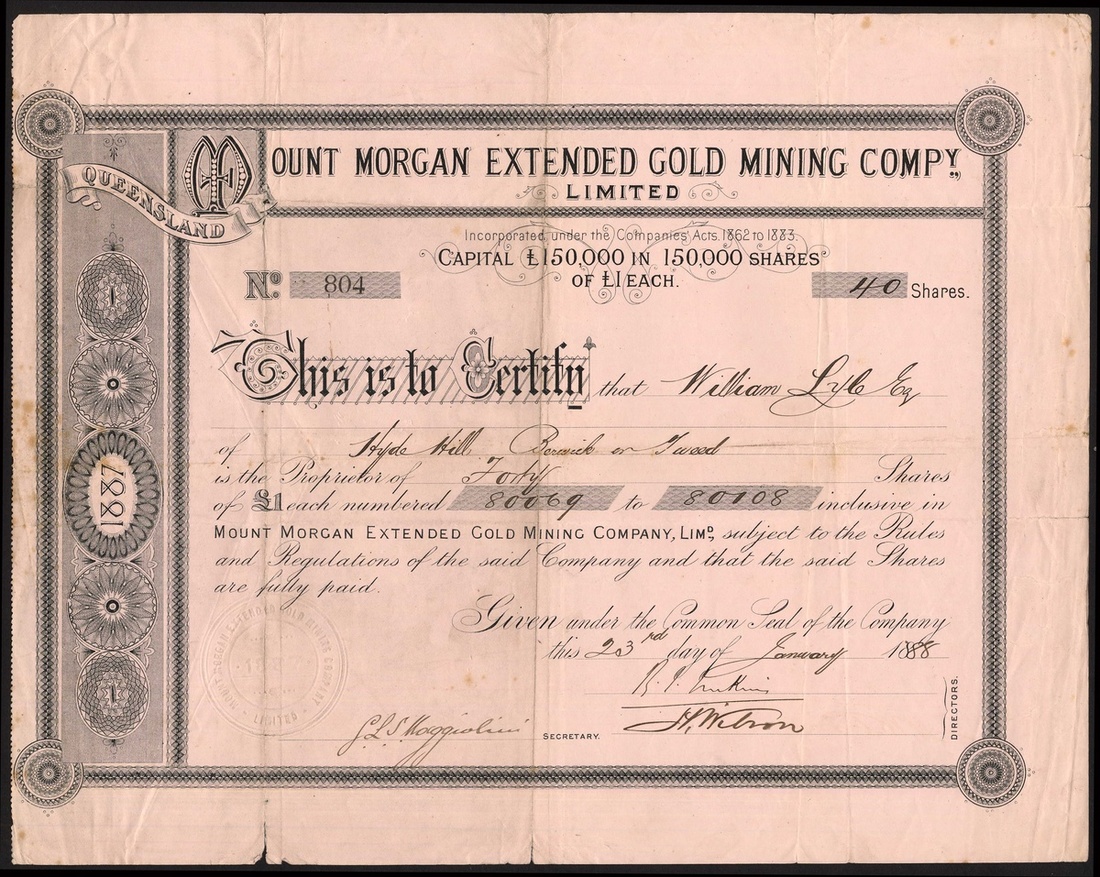 MOUNT MORGAN EXTENDED GOLD MINING COMPY.,
LIMITED
QUEENSLAND
Incorporated under the Companies Acts. 1862 to 1883.
CAPITAL £150,000 IN 150,000 SHARES
OF £1 EACH.
No. 804
40 Shares.
This is to Certify that William Lyle Esq
of Hyde Hill Berwick on Tweed
is the Proprietor of Forty Shares
of £1 each numbered 80069 to 80108 inclusive in
MOUNT MORGAN EXTENDED GOLD MINING COMPANY, LIMD., subject to the Rules
and Regulations of the said Company and that the said Shares
are fully paid.
Given under the Common Seal of the Company
this 23rd day of January 1888
H. Wilson
G L S Maggiolini
SECRETARY.
DIRECTORS.
1
1887
1
MOUNT MORGAN EXTENDED GOLD MINING COMPANY
LIMITED